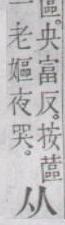 央富反。按蓲
老嫗夜哭。
从